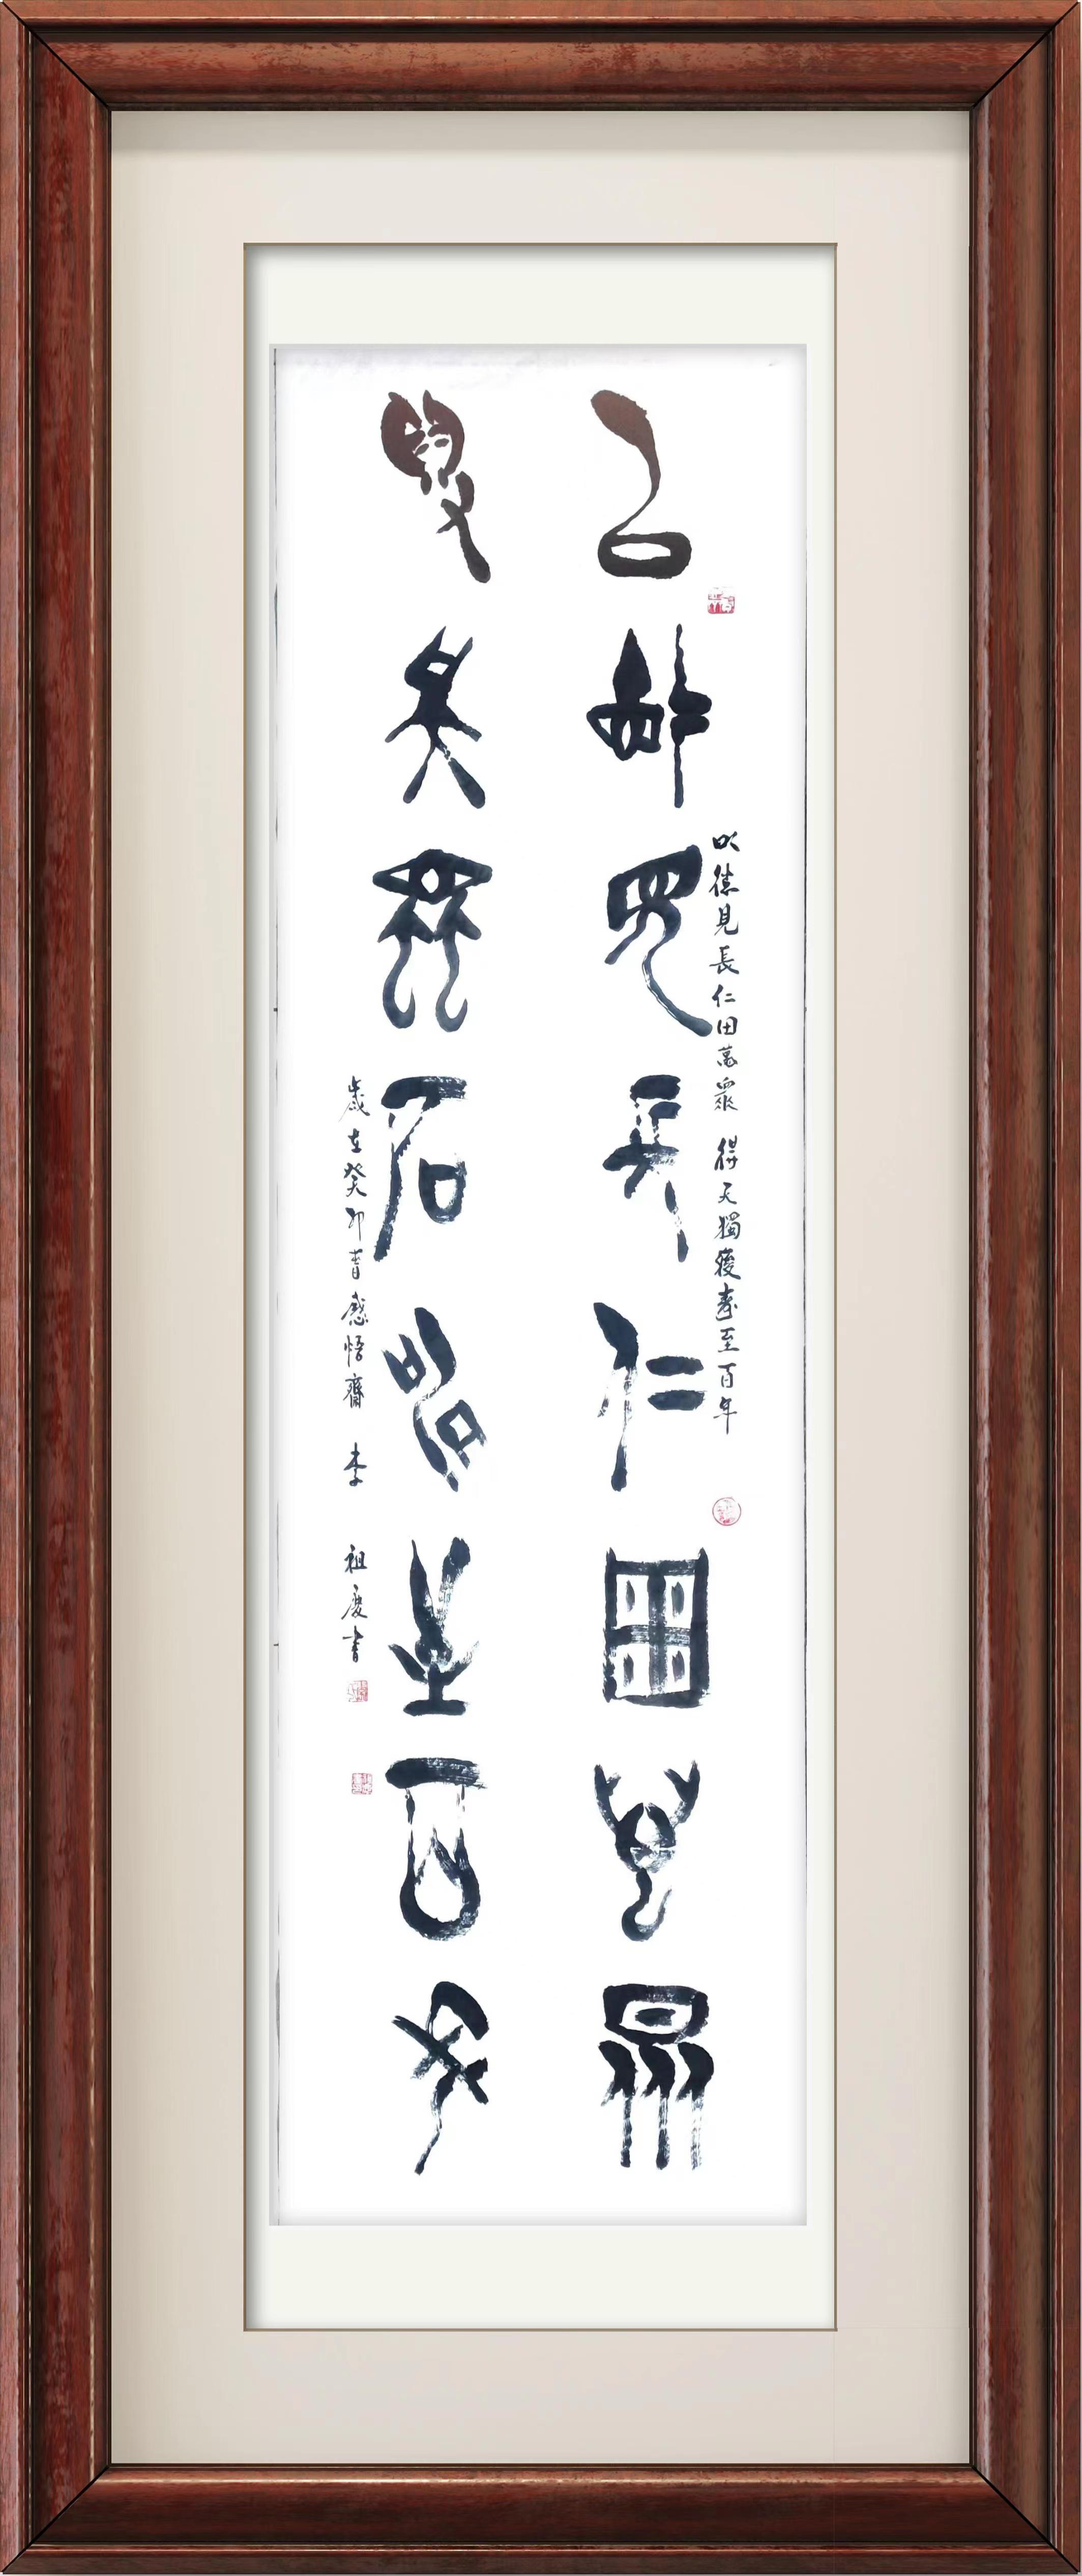 以德見長仁田萬眾 得天獨後壽至百年
以德見長仁田萬眾
得天獨厚壽至百年
歲在癸卯春感悟齋 李祖慶書